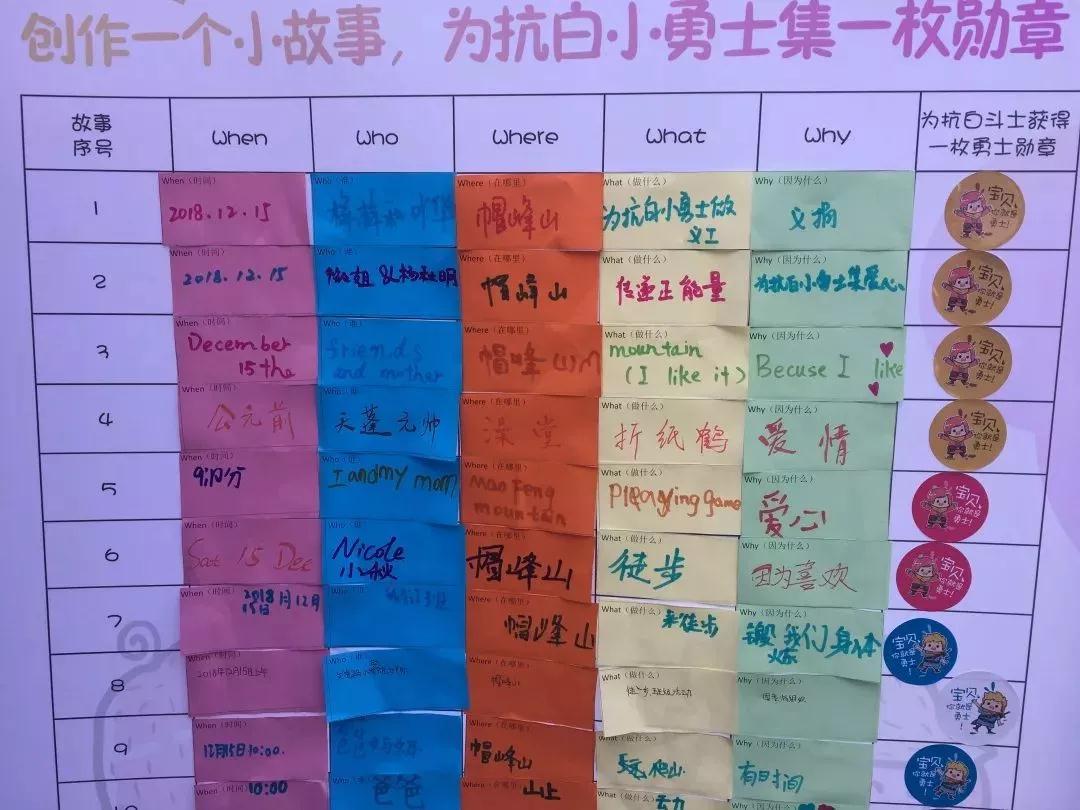 创作一个小故事，为抗白小勇士集一枚勋章
故事序号 When Who Where What Why 为抗白斗士获得一枚勇士勋章
1
When（时间） Who（谁） Where（在哪里） What（做什么） Why（因为什么）
2018.12.15 帽峰山 为抗白小勇士做义工 义捐
宝贝,你就是勇士!
2
When（时间） Who（谁） Where（在哪里） What（做什么） Why（因为什么）
2018.12.15 帽峰山 传递正能量 为抗白小勇士集爱心
宝贝,你就是勇士!
3
When（时间） Who（谁） Where（在哪里） What（做什么） Why（因为什么）
December 15the friends and mother 帽峰山 mountain (I like it) Becuse I like
宝贝,你就是勇士!
4
When（时间） Who（谁） Where（在哪里） What（做什么） Why（因为什么）
公元前 天蓬元帅 澡堂 折纸鹤 爱情
宝贝,你就是勇士!
5
When（时间） Who（谁） Where（在哪里） What（做什么） Why（因为什么）
I and my mom Mao Feng mountain game 爱心
宝贝,你就是勇士!
6
When（时间） Who（谁） Where（在哪里） What（做什么） Why（因为什么）
15 Dec Nicole 帽峰山 徒步 因为喜欢
宝贝,你就是勇士!
7
When（时间） Who（谁） Where（在哪里） What（做什么） Why（因为什么）
2018 12月 15日 帽峰山 来徒步 我们身体
宝贝,你就是勇士!
8
When（时间） Where（在哪里） What（做什么） Why（因为什么）
2018年12月15日上午 帽峰山
宝贝,你就是勇士!
9
When（时间） Where（在哪里） What（做什么） Why（因为什么）
12月15日10:00. 帽峰山 玩,爬山. 有时间
宝贝,你就是勇士!
When（时间） Who（谁） Where（在哪里） What（做什么） Why（因为什么）
10:00 爸爸 山上